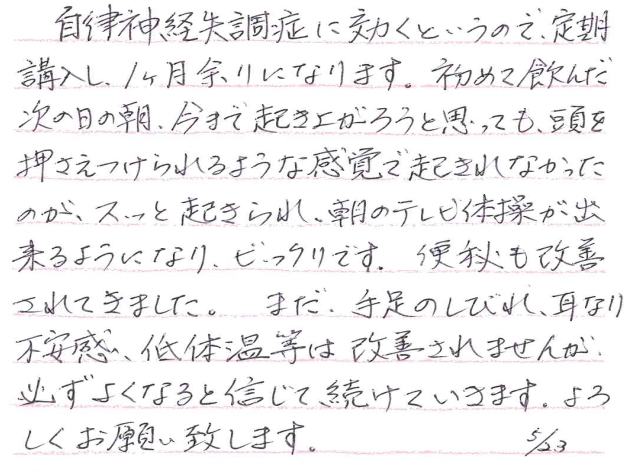 自律神経失調症に効くというので、定期
講入し、1ヶ月余りになります。初めて飲んだ
次の日の朝、今まで起き上がろうと思っても、頭を
押さえつけられるような感覚で起きれなかった
のが、スーッと起きられ、朝のテレビ体操が出
来るようになり、ビックリです。便秘も改善
されてきました。まだ、手足のしびれ、耳なり
不安感、低体温等は改善されませんが、
必ずよくなると信じて続けていきます。よろ
しくお願い致します。 5/23